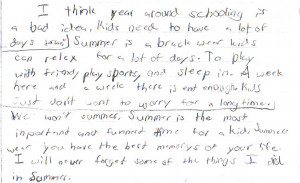 I think year around schooling is
a bad idea. Kids need to have a lot of
days Summer is a brack wear kids
can relex for a lot of days. To play
with friends, play sports, and sleep in. A week
here and a week there is ent enough. Kids
Just don't went to worry for a long time.
We won't summer. Summer is the most
inportent and funnest time for a kid. Summer
wear you have the best memorys of your life.
I will never forget some of the things I did
in Summer.